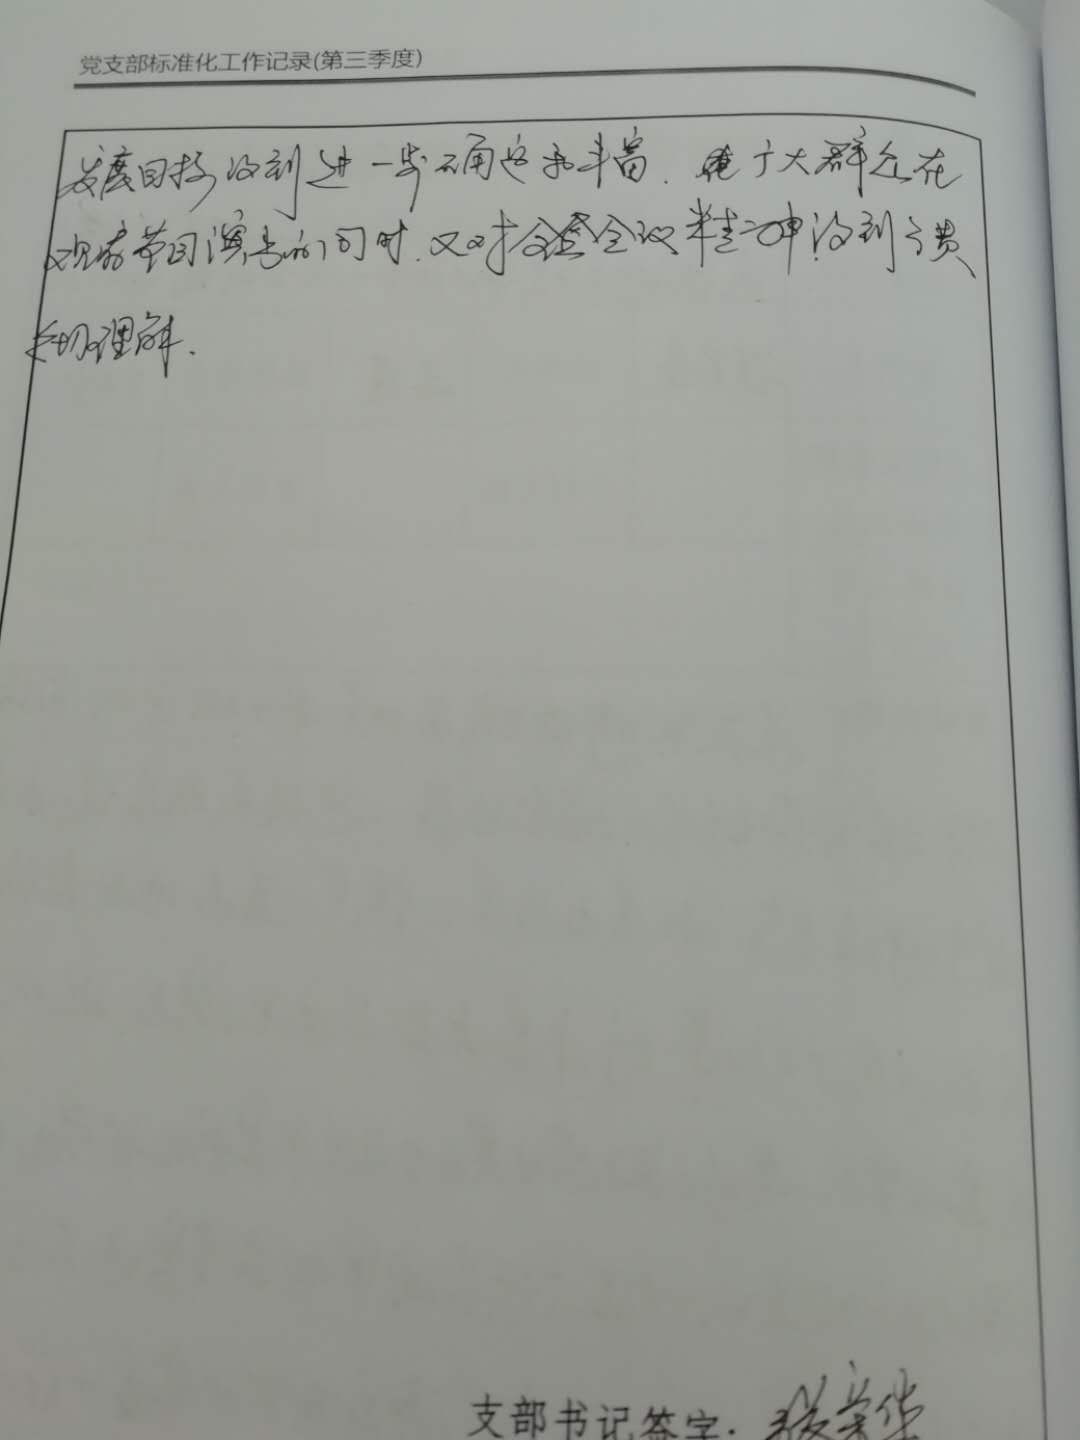 党支部标准化工作记录(第三季度)
发展目标得到进一步确定和丰富.使广大群众在
观看节目演出的同时.又对全会会议精神得到了
切理解.
支部书记签字: